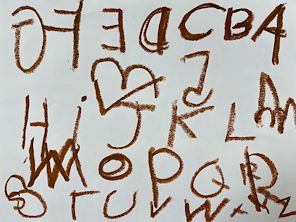 G F E D C B A
H i J K L M
N O P Q R
S T U V W X